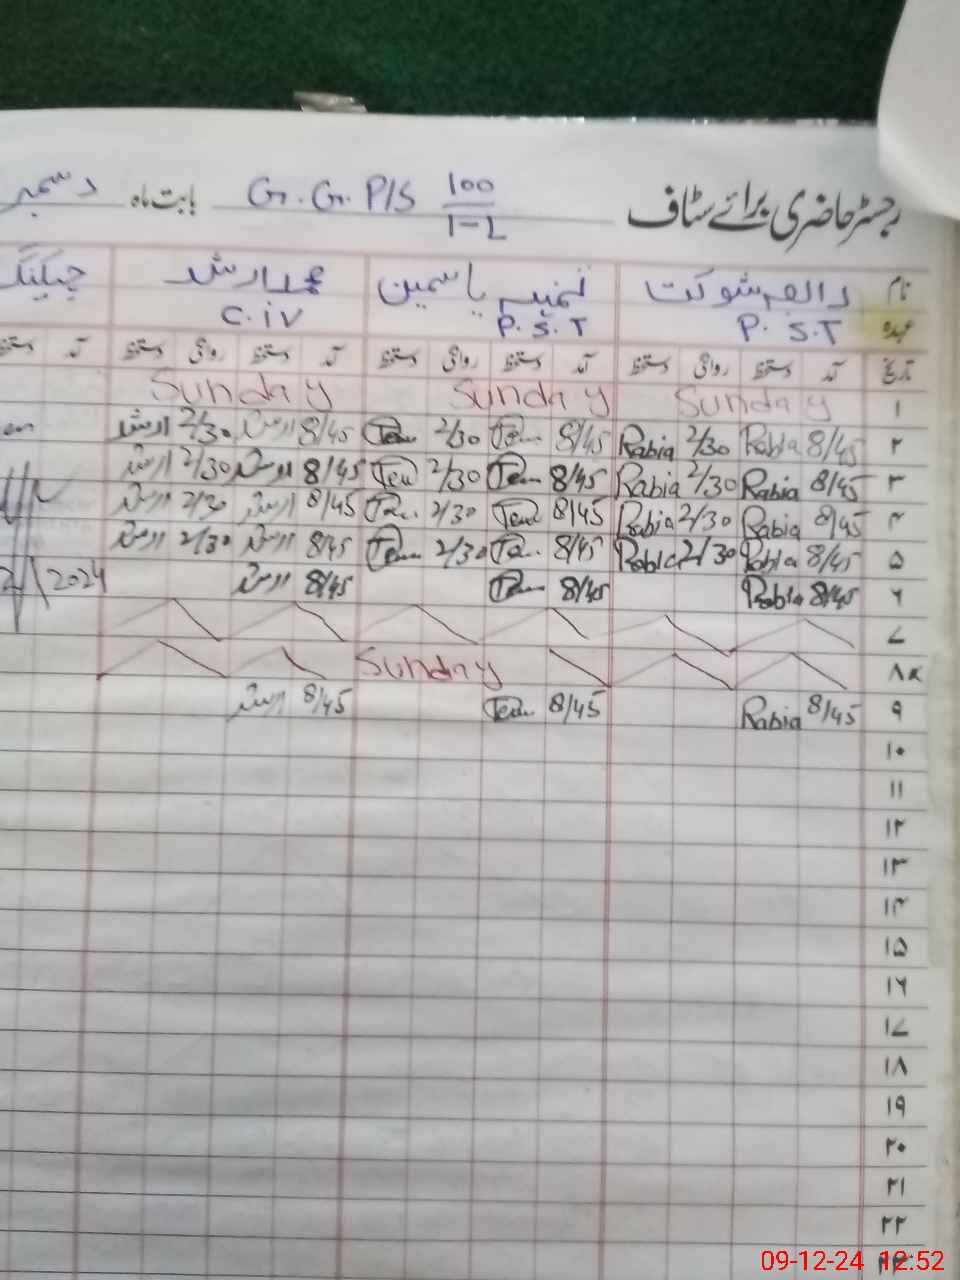 رجسٹر حاضری برائے سٹاف G.G.P/S 100/1-L بابت ماہ دسمبر
نام رابعہ شوکت ثمینہ یاسمین محمد ارشد چیکنگ
عہدہ P.S.T P.S.T C.iv
تاریخ آمد دستخط روانگی دستخط آمد دستخط روانگی دستخط آمد دستخط روانگی دستخط آمد دستخط
۱ Sunday Sunday Sunday
۲ 8/45 Rabia 2/30 Rabia 8/45 2/30 8/45 ارشد 2/30 ارشد
۳ 8/45 Rabia 2/30 Rabia 8/45 2/30 8/45 ارشد 2/30 ارشد
۴ 8/45 Rabia 2/30 Rabia 8/45 2/30 8/45 ارشد 2/30 ارشد
۵ 8/45 Rabia 2/30 Rabia 8/45 2/30 8/45 ارشد 2/30 ارشد
۶ 8/45 Rabia 8/45 8/45 ارشد 2024
۷
۸ Sunday
۹ 8/45 Rabia 8/45 8/45 ارشد
۱۰
۱۱
۱۲
۱۳
۱۴
۱۵
۱۶
۱۷
۱۸
۱۹
۲۰
۲۱
۲۲
۲۳
09-12-24 12:52